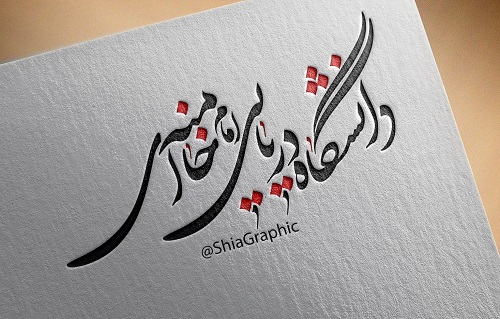 دانشگاه دریایی امام خامنه ای
@ShiaGraphic